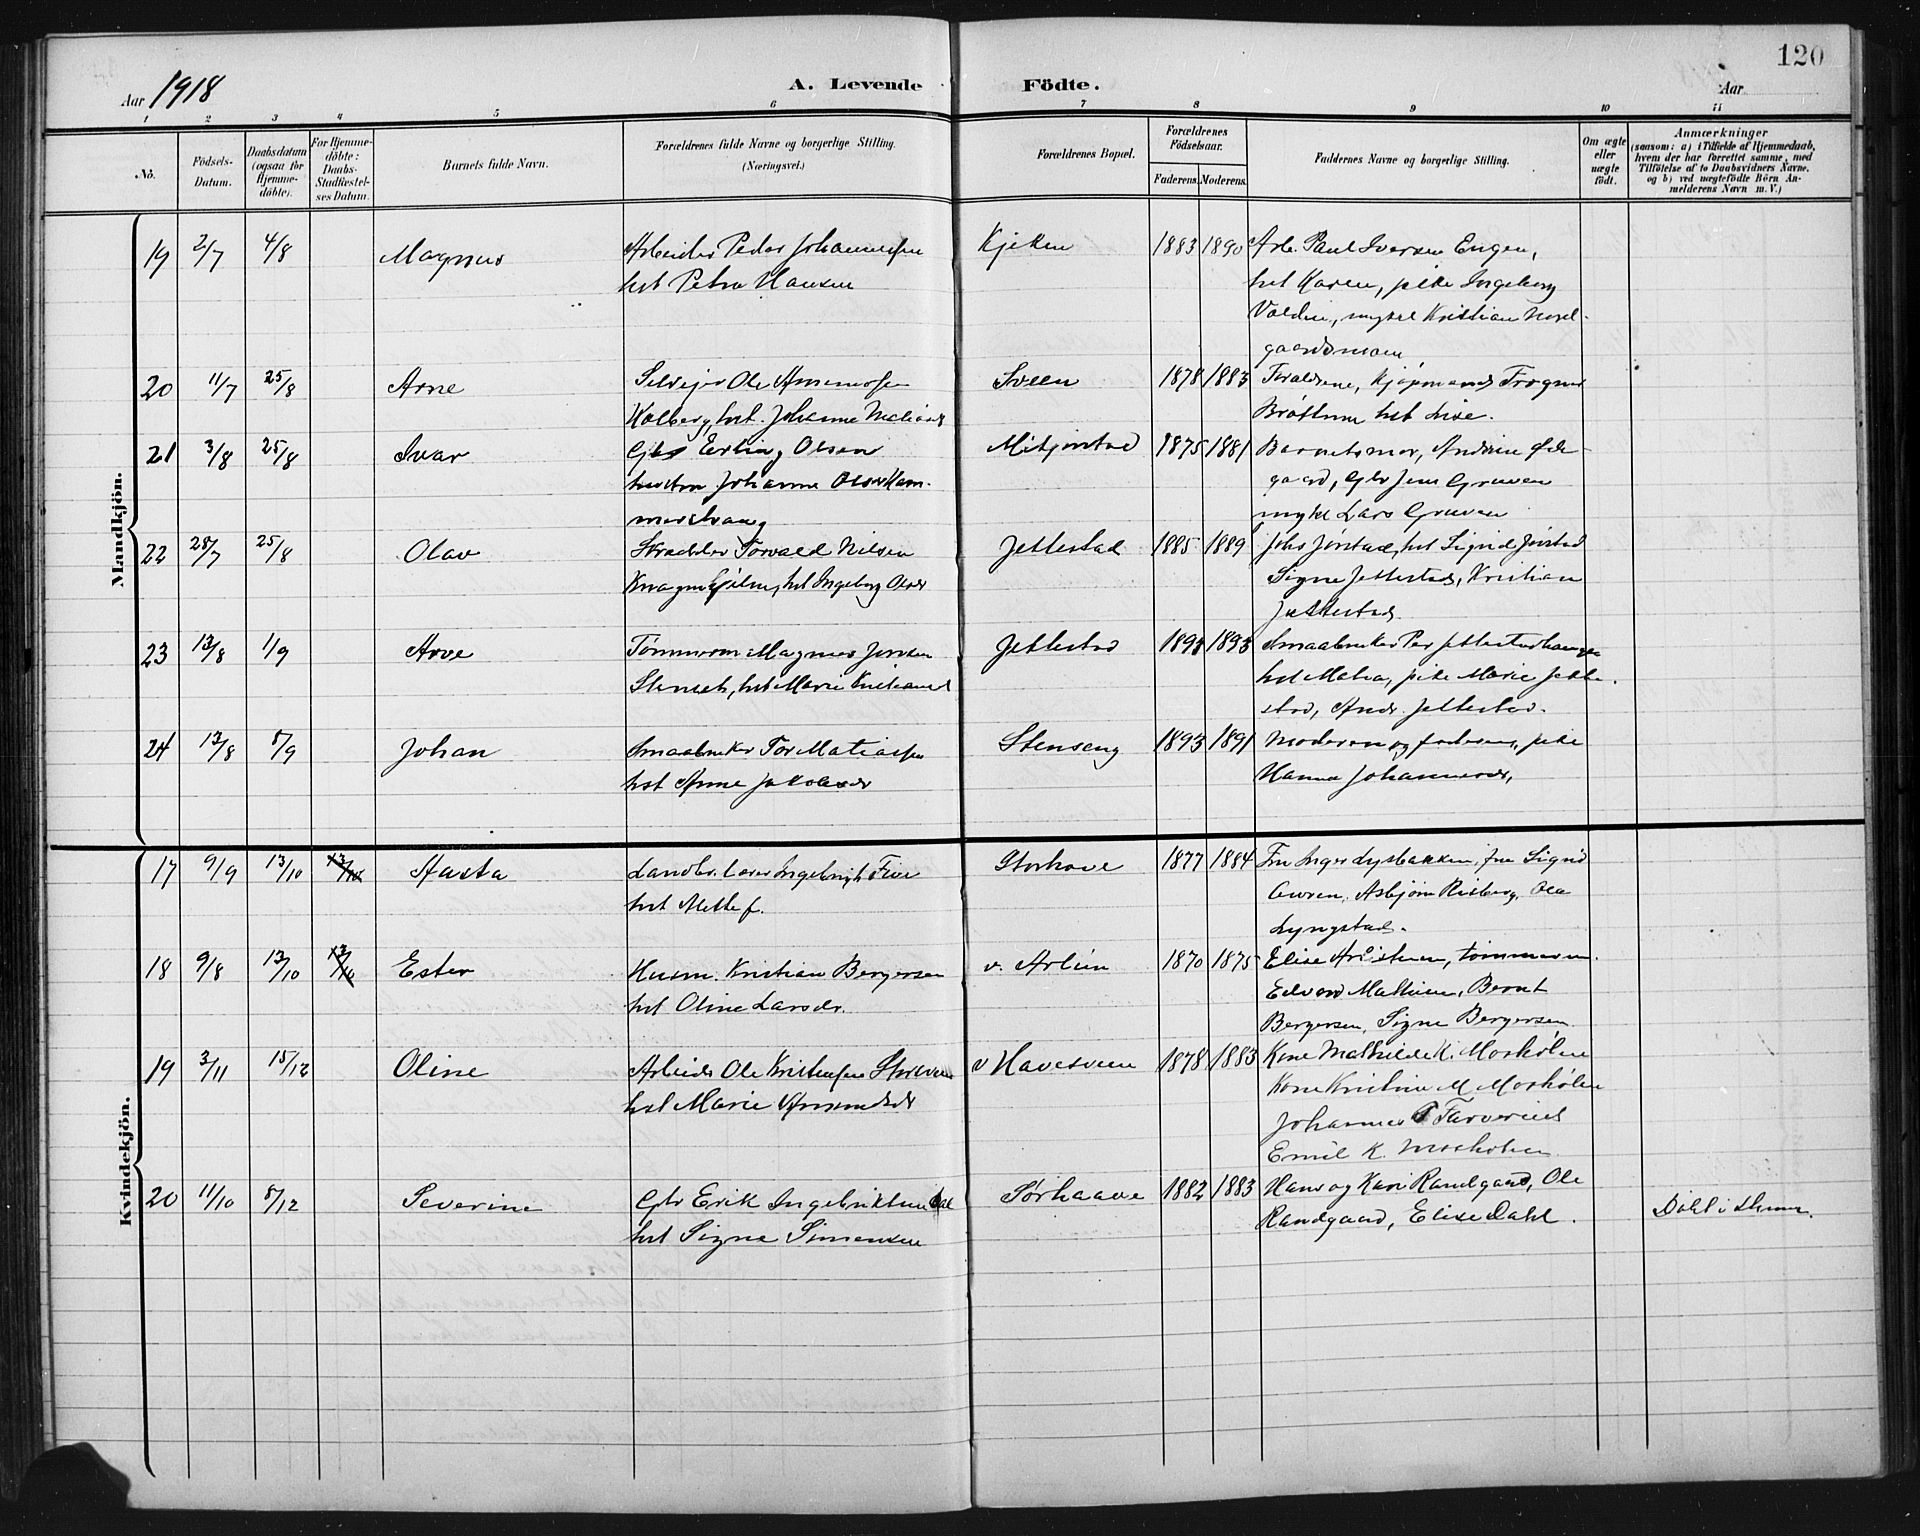 120
Aar 1918
A. Levende Födte.
Aar
1 2 3 4 5 6 7 8 9 10 11
No.
Födsels-Datum.
Daabsdatum (ogsaa for Hjemme-döbte).
For Hjemme-döbte: Daabs-Stadfæstel-ses Datum.
Barnets fulde Navn.
Forældrenes fulde Navne og borgerlige Stilling.
(Næringsvei.)
Forældrenes Bopæl.
Forældrenes Födselsaar.
Faderens. Moderens.
Faddernes Navne og borgerlige Stilling.
Om ægte eller uægte födt.
Anmærkninger
(saasom: a) i Tilfælde af Hjemmedaab, hvem der har forrettet samme, med Tilföielse af to Daabsvidners Navne, og b) ved uægtefödte Börn An-melderens Navn m. V.)
Mandkjön.
19 2/7 4/8 Magnus Arbeider Peder Johannessen Kjeken 1883 1890 Arb. Paul Iversen Engen,
hst Petra Hansen hst Karen, pike Ingeborg
Valdin, ungkl Kristian
20 11/7 25/8 Arne Selveier Ole Sveen 1878 1883 Forældrene, Kjøpmand Frogner
Kolberg, hst. Johanne Brøttum hst Lise.
21 3/8 25/8 Ivar Gbr Erling Olsen 1875 1881 Barnets mor, Andrine Øde-
hustru Johanne gaard, Gbr Jens Gruven
ungkl Lars Gruven
22 28/7 25/8 Olav Skrædder Torvald Nilsen Jettestad 1885 1889 Johs Jørstad, hst Sigrid Jørstad
hst Ingeborg Olsdr Signe Jettestad, Kristian
Jettestad
23 13/8 1/9 Arve Tømmerm Magnus Jensen Jettestad 1893 Smaabruker Per
hst Marie hst Matea, pike Marie Jette-
stad, Andr. Jettestad.
24 13/8 8/9 Johan Smaabruker Tor Matiassen Stenseng 1893 1891 Moderen og faderen, pike
hst Anne Jakobsdr Hanna Johannesdr,
Kvindekjön.
17 9/9 13/10 13/10 Aasta Landbr. lærer Ingebrigt Five Storhove 1877 1884 Fru Inger Lysbakken, fru Sigrid
hst Mette f. Asbjørn Risberg, Ola
Lyngstad.
18 9/8 13/10 13/10 Ester Husm. Kristian Bergersen 1870 1875 Elise tømmerm.
hst Oline Larsdr. Edvard Mathisen, Bernt
Bergersen, Signe Bergersen
19 3/11 15/12 Oline Arbeider Ole Kristensen v Havesveen 1878 1883 Kone Mathilde K. Morkølen
hst Marie Amundsdr Kone Kristine M Morkølen
Johannes
Emil K.
20 11/10 8/12 Severine Gbr Erik Ingebriktsen Dal Sørhaave 1882 1883 Hans og Kari Randgaard, Ole
hst Signe Simensen Randgaard, Elise Dahl. Døbt i